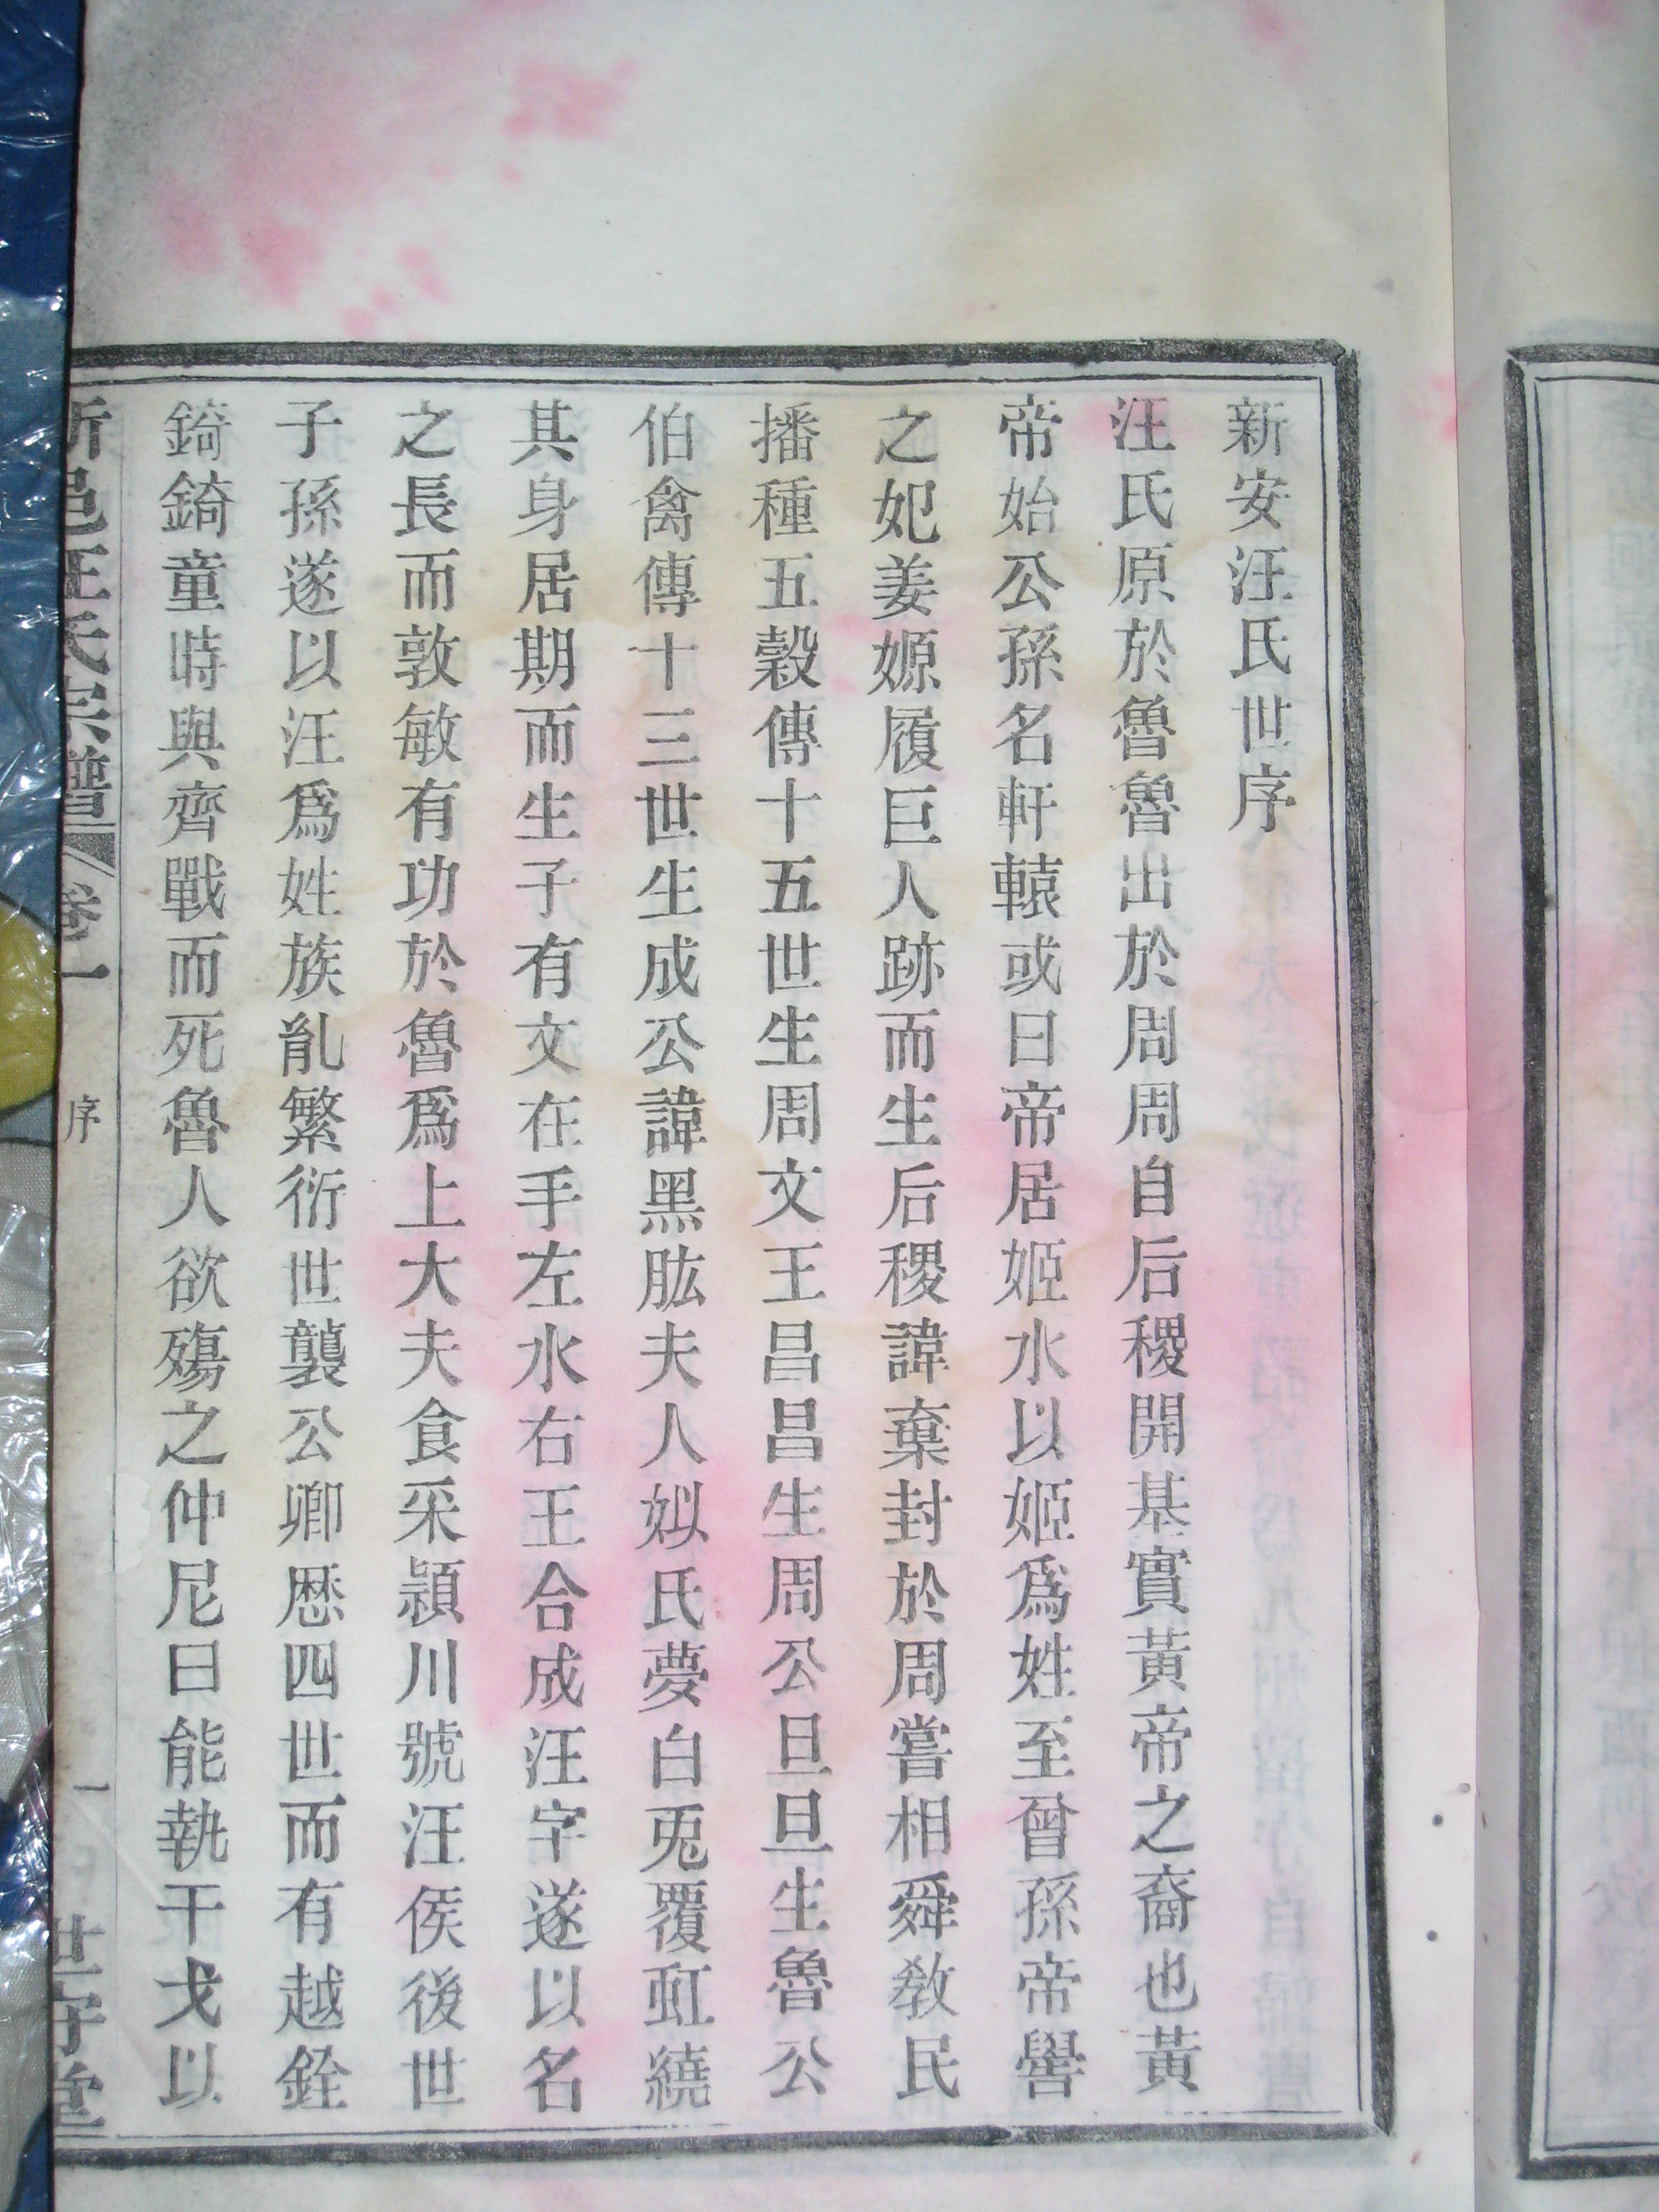 新安汪氏世序
汪氏原於魯魯出於周周自后稷開基實黃帝之裔也黃
帝始公孫名軒轅或曰帝居姬水以姬爲姓至曾孫帝嚳
之妃姜嫄履巨人跡而生后稷諱棄封於周嘗相舜教民
播種五穀傳十五世生周文王昌昌生周公旦旦生魯公
伯禽傳十三世生成公諱黑肱夫人姒氏夢白兎覆虹繞
其身居期而生子有文在手左水右王合成汪字遂以名
之長而敦敏有功於魯爲上大夫食采潁川號汪侯後世
子孫遂以汪爲姓族胤繁衍世襲公卿歴四世而有越銓
錡錡童時與齊戰而死魯人欲殤之仲尼曰能執干戈以
新邑汪氏宗譜 卷一 序 一 世守堂